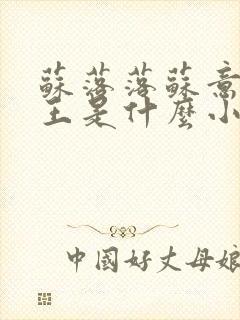 蘇落落蘇意
王是什麼小
中國好丈母娘